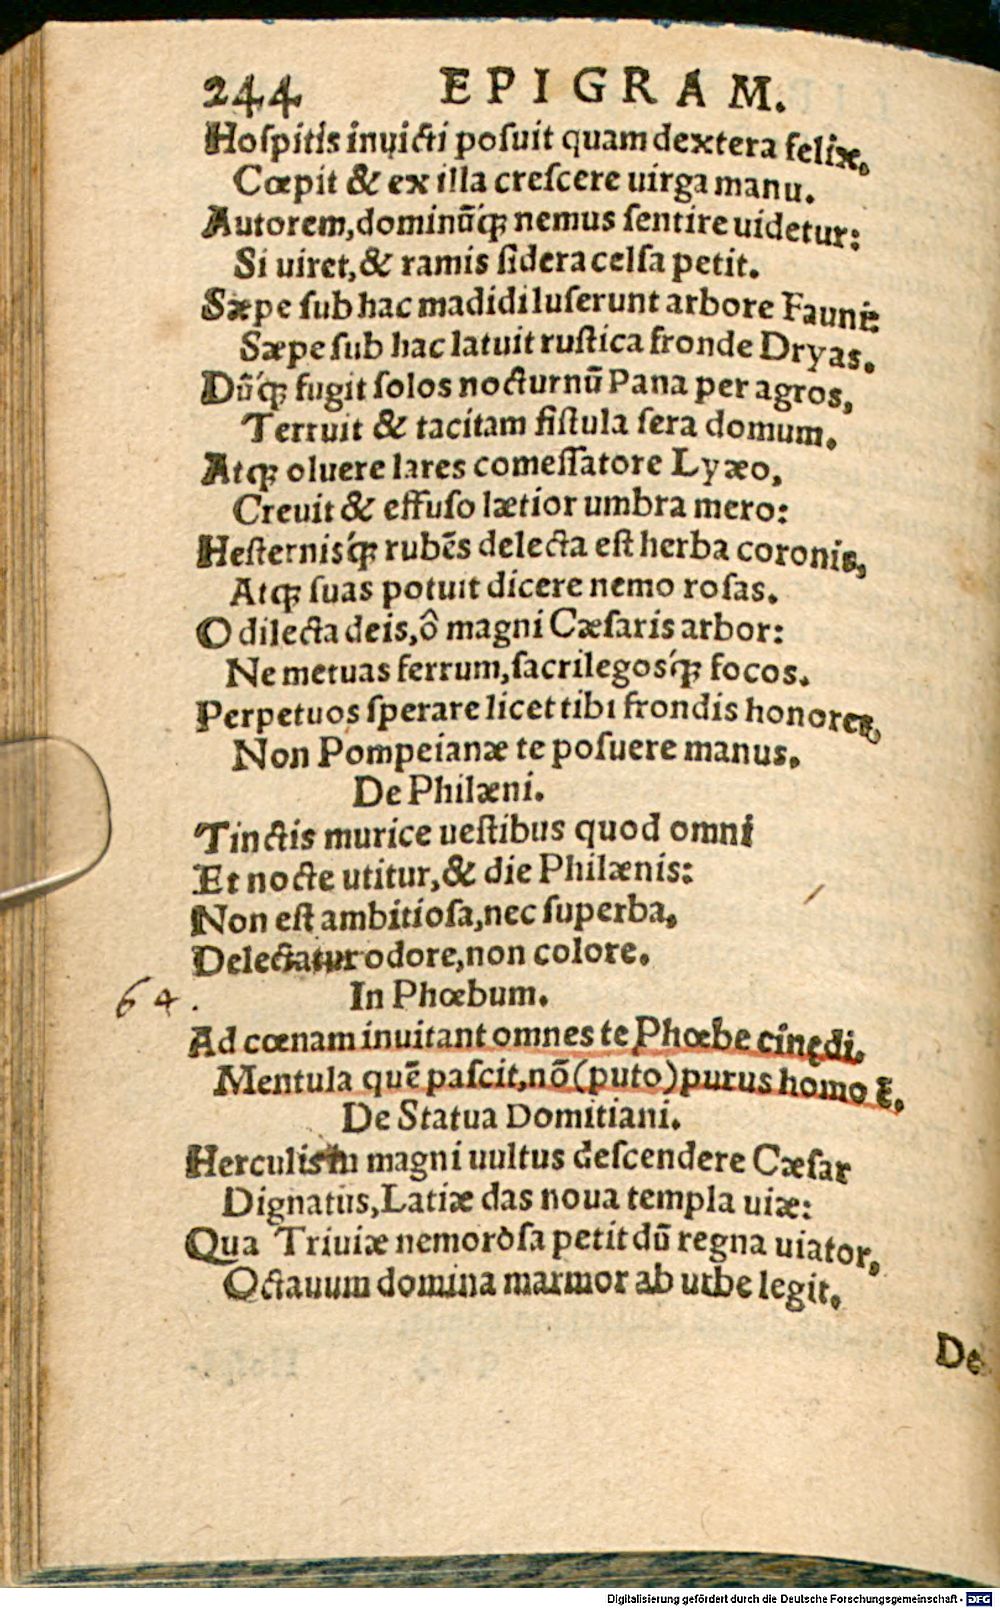 244 EPIGRAM.
Hoſpitis inuicti poſuit quam dextera felix,
Cœpit & ex illa creſcere uirga manu.
Autorem, dominūq́ꝫ nemus ſentire uidetur:
Si uiret, & ramis ſidera celſa petit.
Sæpe ſub hac madidi luſerunt arbore Fauni:
Sæpe ſub hac latuit ruſtica fronde Dryas.
Dūq́ꝫ fugit ſolos nocturnū Pana per agros,
Terruit & tacitam fiſtula ſera domum.
Atqꝫ oluere lares comeſſatore Lyæo,
Creuit & effuſo lætior umbra mero:
Heſternisq́ꝫ rubēs delecta eſt herba coronis,
Atqꝫ ſuas potuit dicere nemo roſas.
O dilecta deis, ô magni Cæſaris arbor:
Ne metuas ferrum, ſacrilegosq́ꝫ focos.
Perpetuos ſperare licet tibi frondis honores,
Non Pompeianæ te poſuere manus.
De Philæni.
Tinctis murice ueſtibus quod omni
Et nocte utitur, & die Philænis:
Non eſt ambitioſa, nec ſuperba,
Delectatur odore, non colore.
64. In Phœbum.
Ad cœnam inuitant omnes te Phœbe cinędi.
Mentula quē paſcit, nō (puto) purus homo ē.
De Statua Domitiani.
Herculis in magni uultus deſcendere Cæſar
Dignatus, Latiæ das noua templa uiæ:
Qua Triuiæ nemoroſa petit dū regna uiator,
Octauum domina marmor ab urbe legit.
De
Digitalisierung gefördert durch die Deutsche Forschungsgemeinschaft - DFG